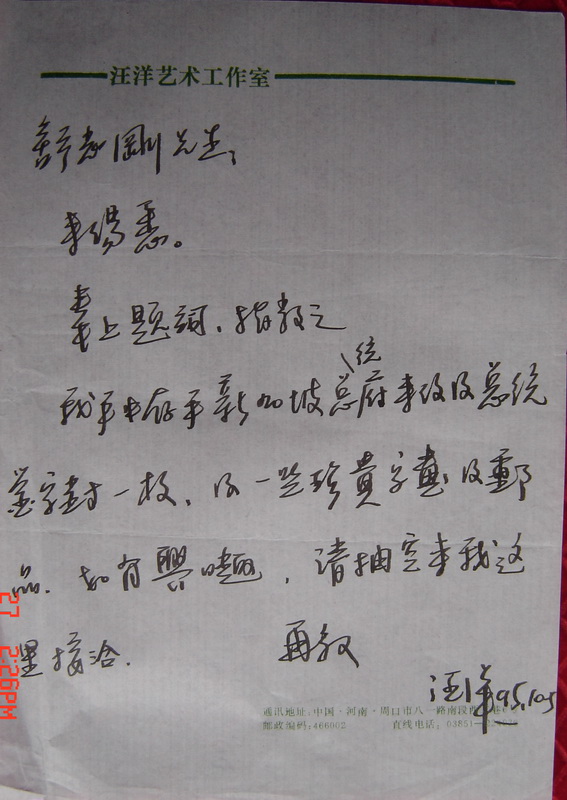 汪洋艺术工作室
舒志刚先生:
来锡悉。
奉上题詞、指教之
统
我手中存平新加坡总府来役及总统
签字封一枚、及一些珍貴字畫及郵
品. 如有興趣, 请抽空来我这
里接洽.
再敘
汪洋 95.10.5
通讯地址:中国·河南·周口市八一路南段
邮政编码:466002 直线电话:03851
27 2:26PM